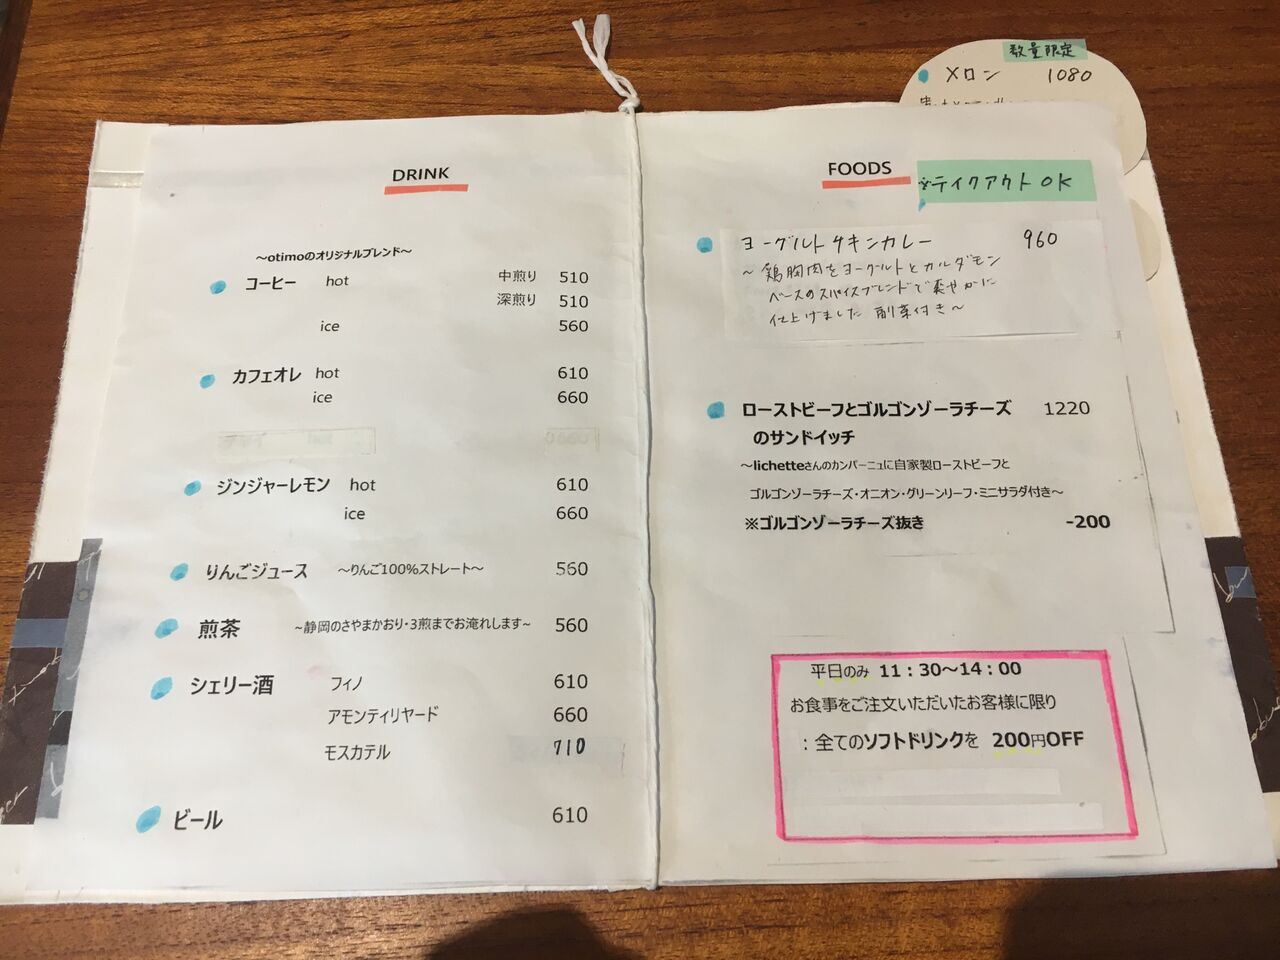 DRINK
～otimoのオリジナルブレンド～
コーヒー hot 中煎り 510
深煎り 510
ice 560
カフェオレ hot 610
ice 660
ジンジャーレモン hot 610
ice 660
りんごジュース ～りんご100%ストレート～ 560
煎茶 ～静岡のさやまかおり・3煎までお淹れします～ 560
シェリー酒 フィノ 610
アモンティリヤード 660
モスカテル 710
ビール 610
数量限定
メロン 1080
FOODS
※テイクアウトOK
ヨーグルトチキンカレー 960
～鶏胸肉をヨーグルトとカルダモン
ベースのスパイスブレンドで爽やかに
仕上げました 副菜付き～
ローストビーフとゴルゴンゾーラチーズ 1220
のサンドイッチ
～lichetteさんのカンパーニュに自家製ローストビーフと
ゴルゴンゾーラチーズ・オニオン・グリーンリーフ・ミニサラダ付き～
※ゴルゴンゾーラチーズ抜き -200
平日のみ 11：30～14：00
お食事をご注文いただいたお客様に限り
：全てのソフトドリンクを 200円OFF